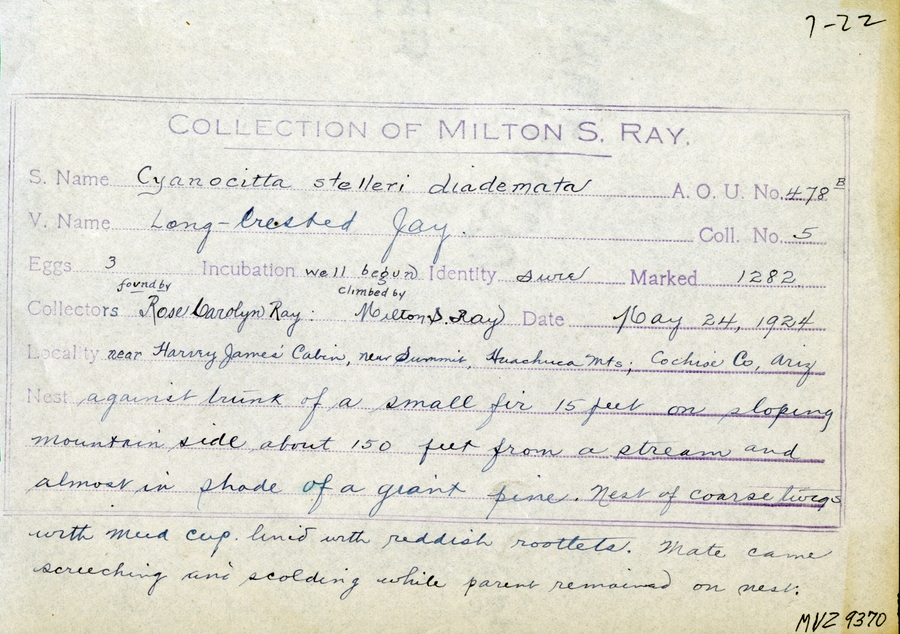 7-22
COLLECTION OF MILTON S. RAY.
S. Name Cyanocitta stelleri diademata A. O. U. No. 478 B
V. Name Long-Crested Jay. Coll. No. 5
Eggs 3 Incubation well begun Identity sure Marked 1282
found by climbed by
Collectors Rose Carolyn Ray: Milton S. Ray Date May 24, 1924
Locality near Harvey James' Cabin, near Summit, Huachuca Mts; Cochise Co, Ariz
Nest against trunk of a small fir 15 feet on sloping
mountain side about 150 feet from a stream and
almost in shade of a giant pine. Nest of coarse twigs
with mud cup. lined with reddish rootlets. Mate came
screeching and scolding while parent remained on nest.
MVZ 9370